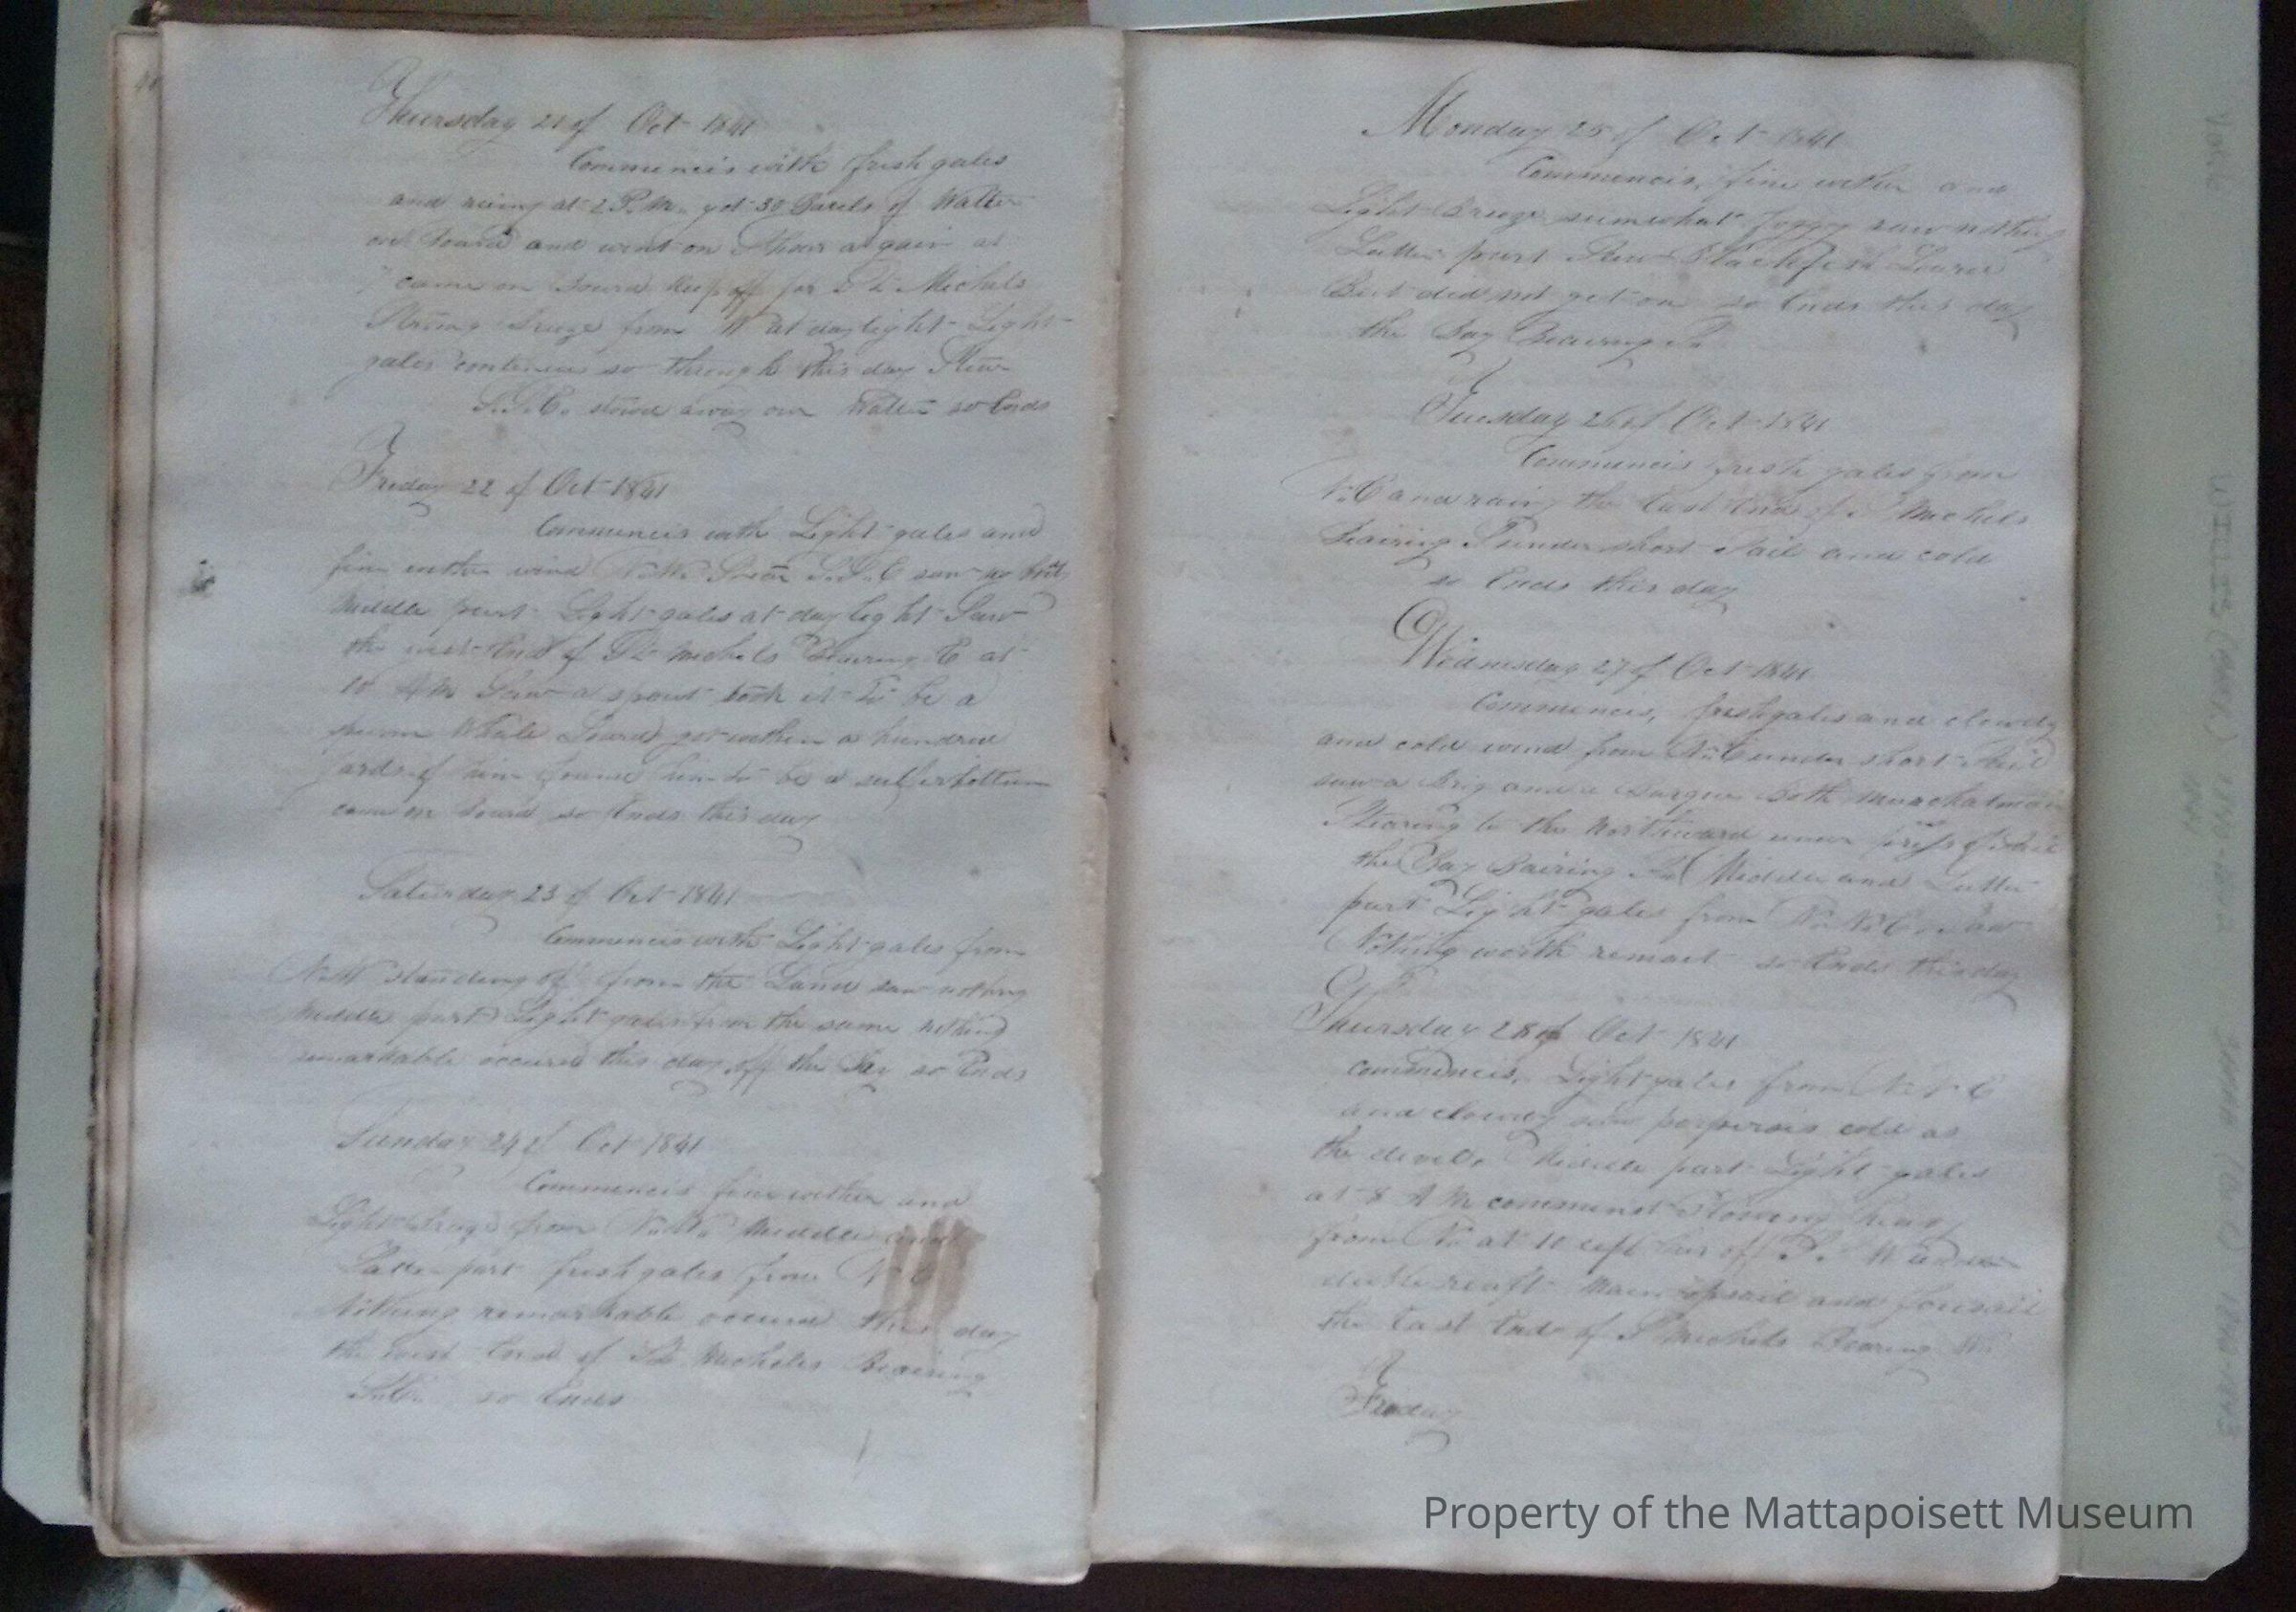 Thursday 21 of Oct 1841
Commencis with fresh gales
and at 2 P.M. got 30 Barels of Watter
on Board and went on Shore again at
7 came on Board Keep off for St Michels
Strong Breeze from W at daylight Light
gales continues so through this day
S.S.E. stowd away our Watter so Ends
Friday 22 of Oct 1841
Commencis with Light gales and
fine wether wind N.W. S.S.E saw no
Middle part Light gales at daylight Saw
the west End of St Michels Bearing E at
10 A M Saw a spout took it to be a
sperm Whale Lowrd got within a hundred
yards of him found him to be a sulferbottum
came on board so Ends this day
Saturday 23 of Oct 1841
Commencis with Light gales from
N.W standing of from the Land saw nothing
Middle part Light gales from the same nothing
remarkable occured this day off the Bay so Ends
Sunday 24 of Oct 1841
Commencis fine wether and
Light Breeze from N.W. Middle and
Latter part fresh gales from N E
Nothing remarkable occured this day
the west End of St Michels Bearing
S.E. so Ends
Monday 25 of Oct 1841
Commencis, fine wether and
Light Breeze sumwhat foggy saw nothing
Latter part Saw Blackfish Lowrd
But did not get one so Ends this day
the Bay Bearing S
Tuesday 26 of Oct 1841
Commencis fresh gales from
N.E and rainy the East End of St Michels
Bairing S under short Sail and cold
so Ends this day
Wednesday 27 of Oct 1841
Commencis, fresh gales and clowdy
and cold wind from N.E under short Sail
saw a Brig and a Barque Both
Stearing to the Northward under press of Sail
the Bay Bairing Middle and Latter
part Light gales from N.N.E. Saw
Nothing worth remark so Ends this day
Thursday 28 of Oct 1841
commencis, Light gales from
and clowdy saw porpursis cold as
the devel. Middle part Light gales
at 8 A M commenst Blowing heavy
from N. at 10 off S.S.W under
duble reaft Main topsail and foresail
the East End of St Michels Bearing W.
Friday
Property of the Mattapoisett Museum